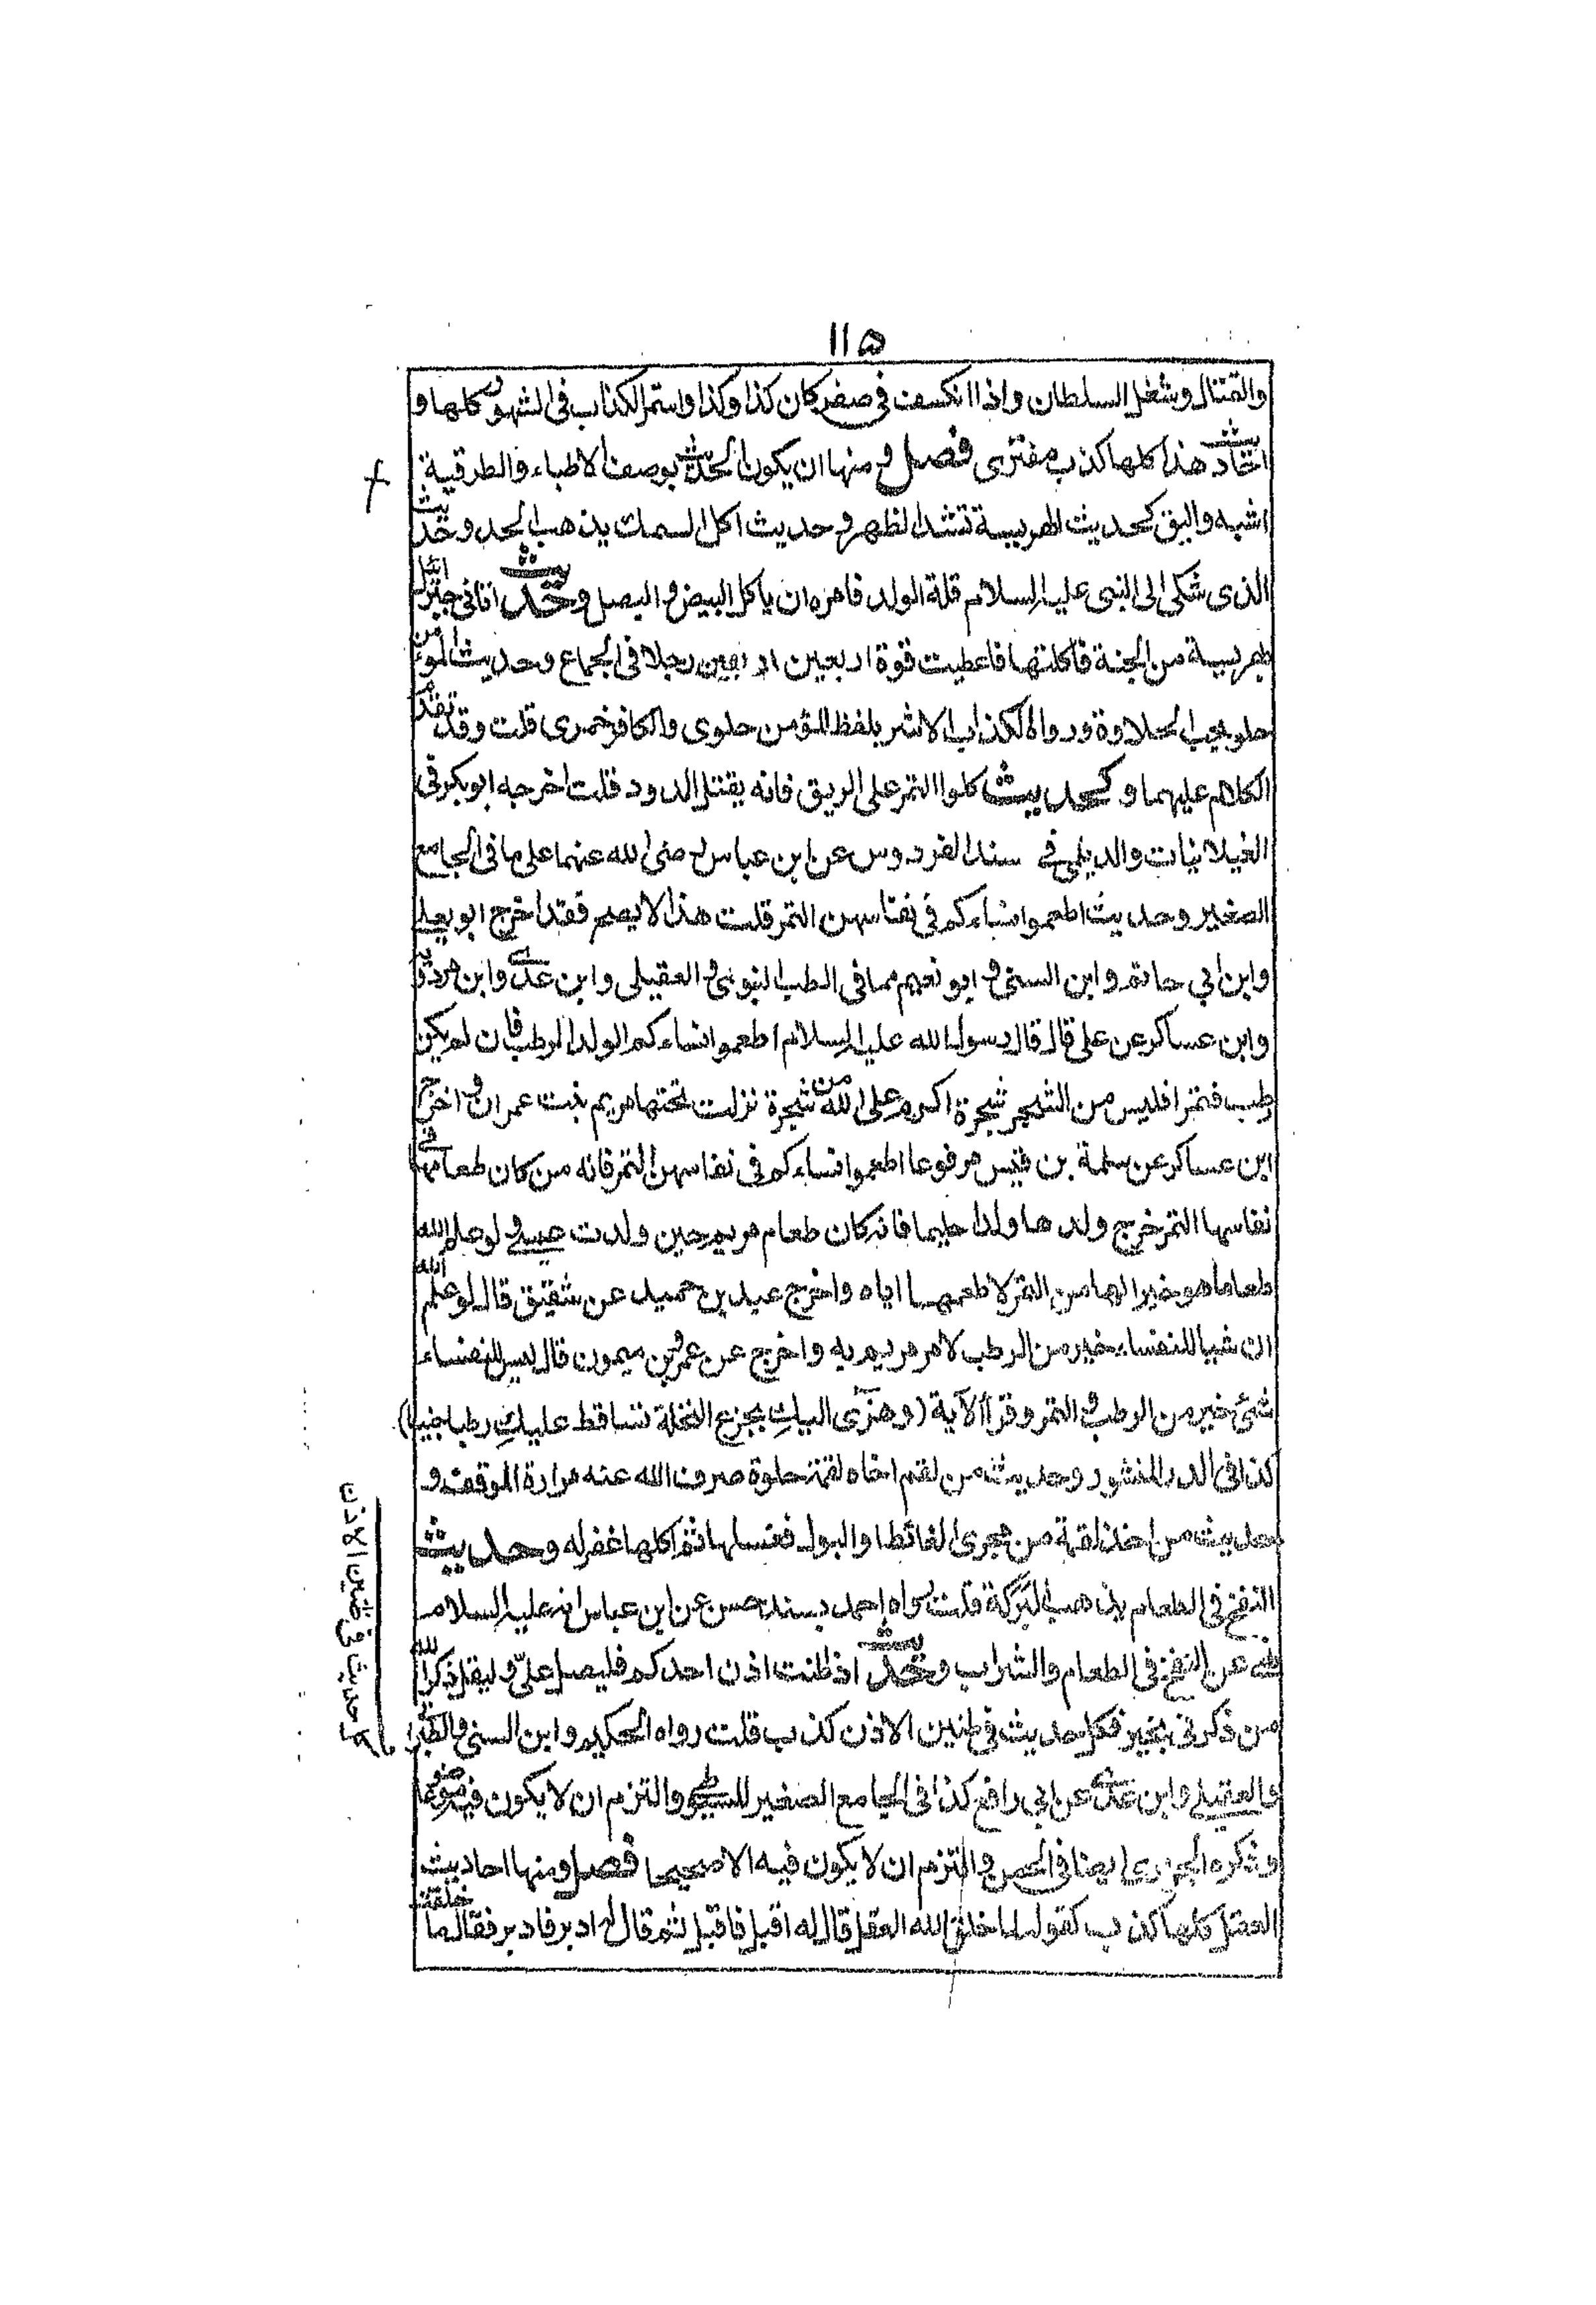 ١١٥
والقتال وشغل السلطان واذا انكسف فى صفر كان كذا وكذا واستمر الكذاب فى الشهور كلها و
احاديث هذا كلها كذب مفترى فصل ومنها ان يكون الحديث بوصف الاطباء والطرقية
اشبه واليق كحديث الهريسة تشد الظهر وحديث اكل السمك يذهب الجسد وحديث
الذى شكى الى النبى عليه السلام قلة الولد فامره ان ياكل البيض والبصل وحديث اتانى جبرائيل
بهريسة من الجنة فاكلتها فاعطيت قوة اربعين رجلا فى الجماع وحديث المؤمن
حلو يحب الحلاوة ورواه الكذاب الاشر بلفظ المؤمن حلوى والكافر خمرى قلت وقد تقدم
الكلام عليهما وكحديث كلوا التمر على الريق فانه يقتل الدود قلت اخرجه ابو بكر فى
الغيلانيات والديلمى فى سند الفردوس عن ابن عباس رضى الله عنهما على ما فى الجامع
الصغير وحديث اطعموا نساءكم فى نفاسهن التمر قلت هذا لا يصح فقد اخرج ابو يعلى
وابن ابي حاتم وابن السنى وابو نعيم معا فى الطب النبوى والعقيلى وابن عدى وابن مردويه
وابن عساكر عن على قال قال رسول الله عليه السلام اطعموا نساءكم الولد الرطب فان لم يكن
رطب فتمرا فليس من الشجر شجرة اكرم على الله من شجرة نزلت تحتها مريم بنت عمران واخرج
ابن عساكر عن سلمة بن قيس مرفوعا اطعموا نساءكم فى نفاسهن التمر فانه من كان طعامها فى
نفاسها التمر خرج ولدها ولدا حليما فانه كان طعام مريم حين ولدت عيسى ولو علم الله
طعاما هو خيرا لها من التمر لاطعمها اياه واخرج عبد بن حميد عن شقيق قال لو علم الله
ان شيا للنفساء خير من الرطب لامر مريم به واخرج عن عمرو بن ميمون قال ليس للنفساء
شئ خير من الرطب والتمر وقرأ الآية (وهزى اليك بجزع النخلة تساقط عليك رطبا جنيا)
كذا فى الدر المنثور وحديث من لقم اخاه لقمة حلوة صرف الله عنه مرارة الموقف و
حديث من اخذ لقمة من مجرى الغائط او البول فغسلها ثم اكلها غفر له وحديث
النفخ فى الطعام يذهب البركة قلت رواه احمد بسند حسن عن ابن عباس انه عليه السلام
نهى عن النفخ فى الطعام والشراب وحديث اذ اطنت اذن احدكم فليصل على وليقل ذكر الله
من ذكرنى بخير فكل حديث فى طنين الاذن كذب قلت رواه الحكيم وابن السنى والطبرانى
والعقيلى وابن عدى عن ابي رافع كذا فى الجامع الصغير للسيوطى والتزم ان لا يكون فيه موضوعا
وذكره الجزرى ايضا فى الحصن والتزم ان لا يكون فيه الا صحيحا فصل ومنها احاديث
العقل كلها كذب كقوله لما خلق الله العقل قال له اقبل فاقبل ثم قال له ادبر فادبر فقال ما خلقت
حديث فى طنين الاذن